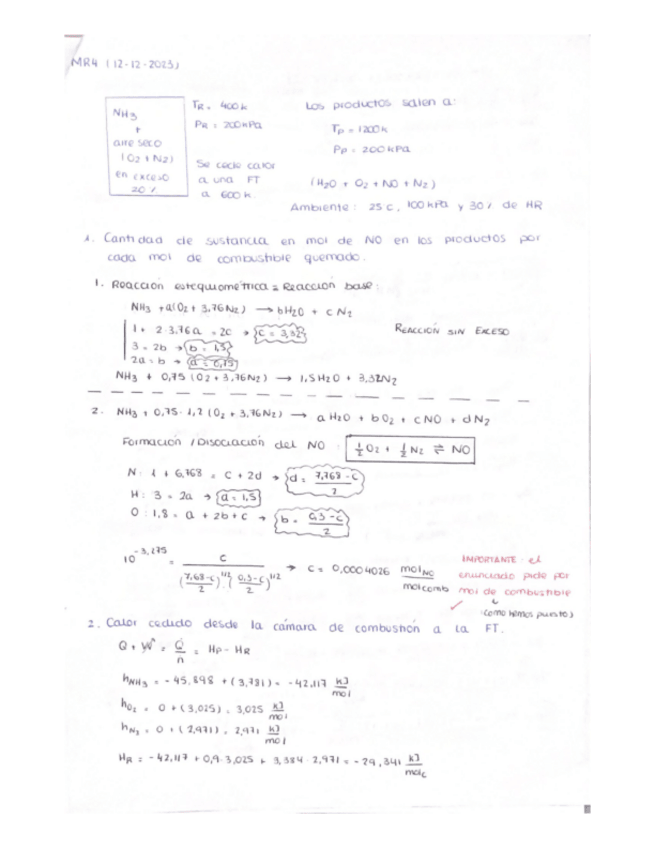 MR4 (12-12-2023)
NH3
+
aire seco
(O2 + N2)
en exceso
20 %
TR = 400 k
PR = 200 kPa
Se cede calor
a una FT
a 600 k.
Los productos salen a:
TP = 1200k
PP = 200 kPa
(H2O + O2 + NO + N2)
Ambiente: 25 C, 100 kPa y 30 % de HR
1. Cantidad de sustancia en mol de NO en los productos por
cada mol de combustible quemado.
1. Reacción estequiométrica = Reacción base:
NH3 + a(O2 + 3,76N2) → bH2O + c N2
1 + 2·3,76a = 2c → c = 3,32
3 = 2b → b = 1,5
2a = b → a = 0,75
REACCIÓN SIN EXCESO
NH3 + 0,75 (O2 + 3,76N2) → 1,5H2O + 3,32N2
2. NH3 + 0,75 · 1,2 (O2 + 3,76N2) → a H2O + b O2 + c NO + d N2
Formación / Disociación del NO : 1/2 O2 + 1/2 N2 ⇌ NO
N: 1 + 6,768 = c + 2d → d = (7,768 - c)/2
H: 3 = 2a → a = 1,5
O: 1,8 = a + 2b + c → b = (0,3 - c)/2
10^-3,275 = c / ((7,68 - c)/2)^1/2 · ((0,3 - c)/2)^1/2 → c = 0,0004026 molNO/molcomb
IMPORTANTE: el
enunciado pide por
mol de combustible
(como hemos puesto)
2. Calor cedido desde la cámara de combustión a la FT.
Q + W = Q/n = HP - HR
hNH3 = -45,898 + (3,781) = -42,117 kJ/mol
hO2 = 0 + (3,025) = 3,025 kJ/mol
hN2 = 0 + (2,971) = 2,971 kJ/mol
HR = -42,117 + 0,9·3,025 + 3,384·2,971 = -29,341 kJ/molc